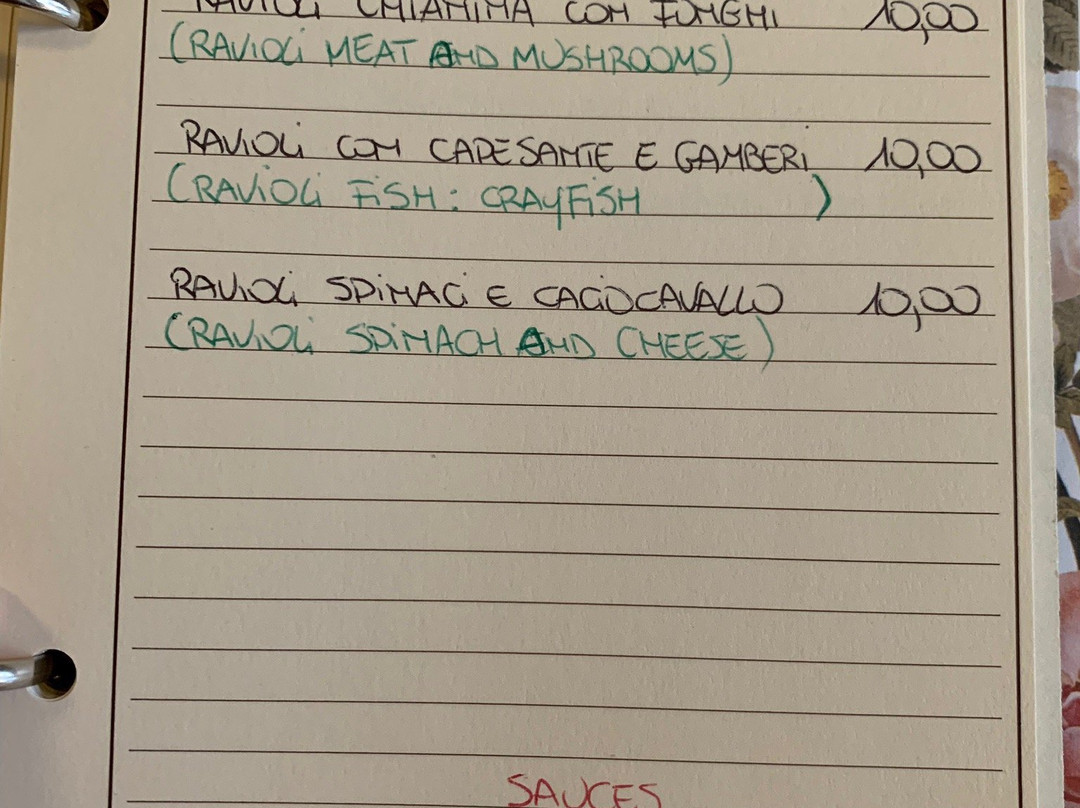 RAVIOLI CHIANINA CON FUNGHI 10,00
(RAVIOLI MEAT AND MUSHROOMS)
RAVIOLI CON CAPESANTE E GAMBERI 10,00
(RAVIOLI FISH: CRAYFISH )
RAVIOLI SPINACI E CACIOCAVALLO 10,00
(RAVIOLI SPINACH AND CHEESE)
SAUCES